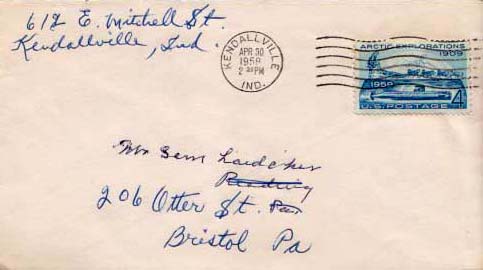 612 E. Mitchell St.
Kendallville, Ind.
KENDALLVILLE
APR 30
2 PM
IND.
ARCTIC EXPLORATIONS
1909
1959
U.S. POSTAGE 4¢
Mr
Reading
206 Otter St. Pa
Bristol Pa